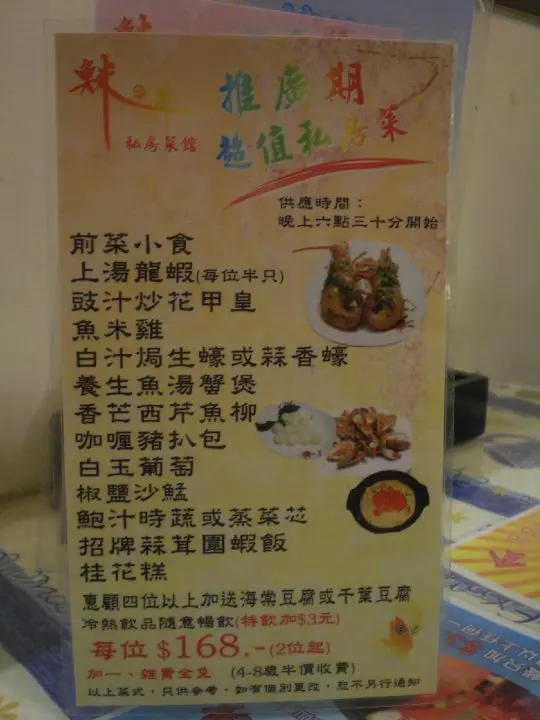 推廣期
私房菜館
超值私房菜
供應時間：
晚上六點三十分開始
前菜小食
上湯龍蝦(每位半只)
豉汁炒花甲皇
魚米雞
白汁焗生蠔或蒜香蠔
養生魚湯蟹煲
香芒西芹魚柳
咖喱豬扒包
白玉葡萄
椒鹽沙鯭
鮑汁時蔬或蒸菜芯
招牌蒜茸團蝦飯
桂花糕
惠顧四位以上加送海棠豆腐或千葉豆腐
冷熱飲品隨意暢飲(特飲加$3元)
每位 $168.-(2位起)
加一、雜費全免 (4-8歲半價收費)
以上菜式，只供參考，如有個別更改，恕不另行通知